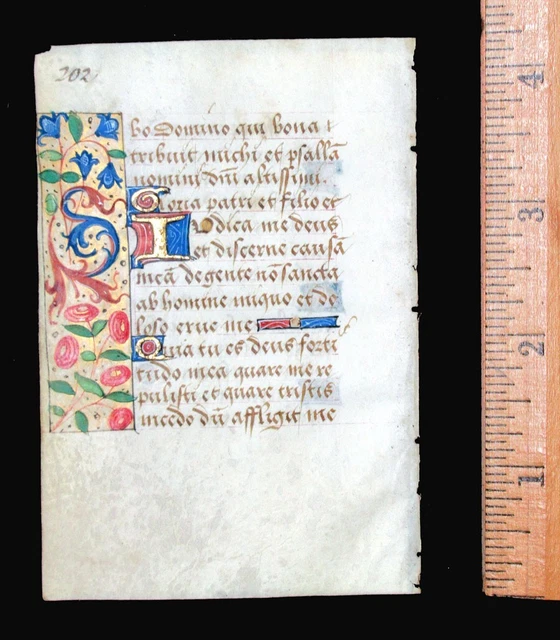 202
bo domino qui bona t
tribuit michi et psallā
nomini dn̄i altissimi.
Gloria patri et filio et
Iudica me deus
et discerne causā
meā de gente nō sancta
ab homine iniquo et do
loso erue me
Quia tu es deus forti
tudo mea quare me re
pulisti et quare tristis
incedo dū affligit me
1
2
3
4